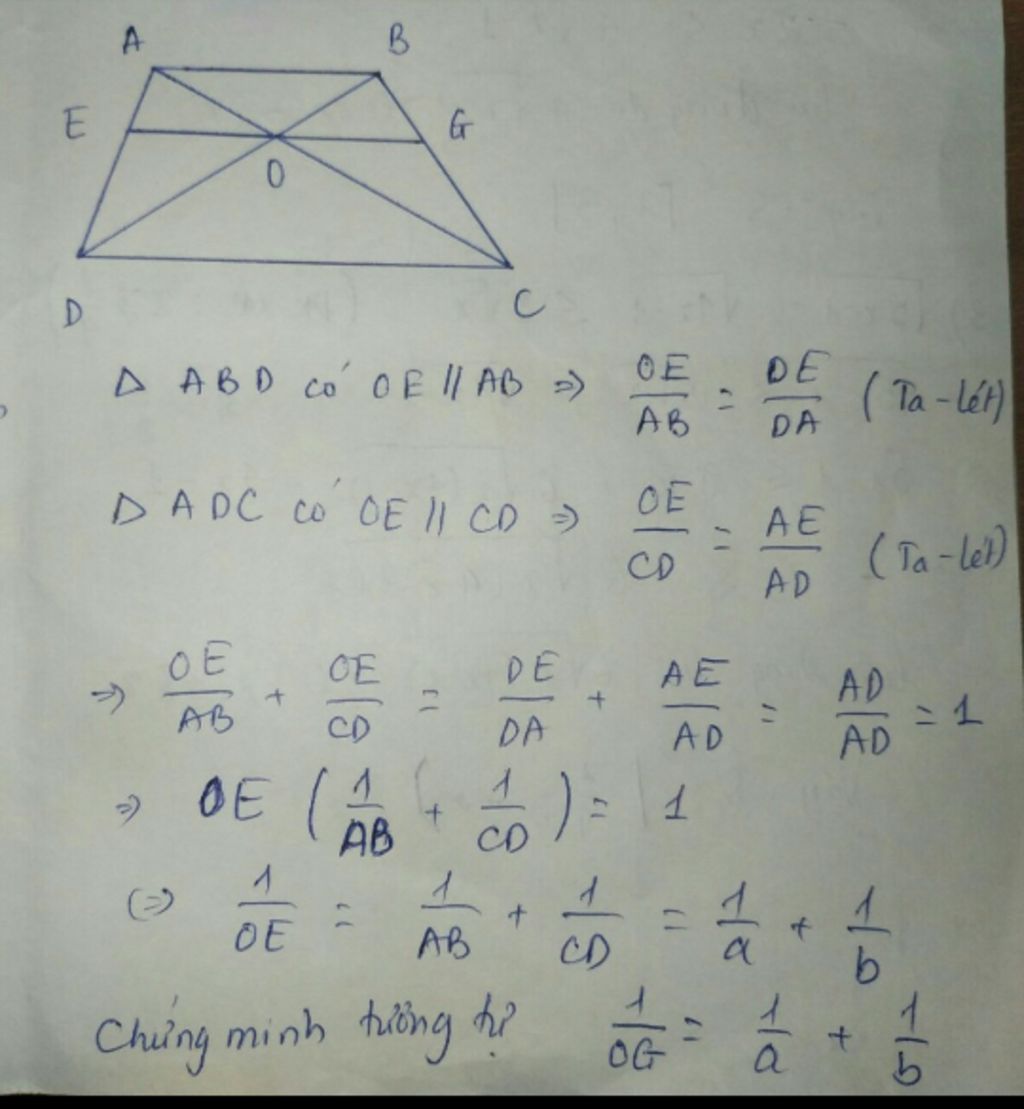 A B
E G
O
D C
Δ ABD có OE // AB => OE/AB = DE/DA (Ta-lét)
Δ ADC có OE // CD => OE/CD = AE/AD (Ta-lét)
=> OE/AB + OE/CD = DE/DA + AE/AD = AD/AD = 1
=> OE (1/AB + 1/CD) = 1
(=> 1/OE = 1/AB + 1/CD = 1/a + 1/b
Chứng minh tương tự 1/OG = 1/a + 1/b